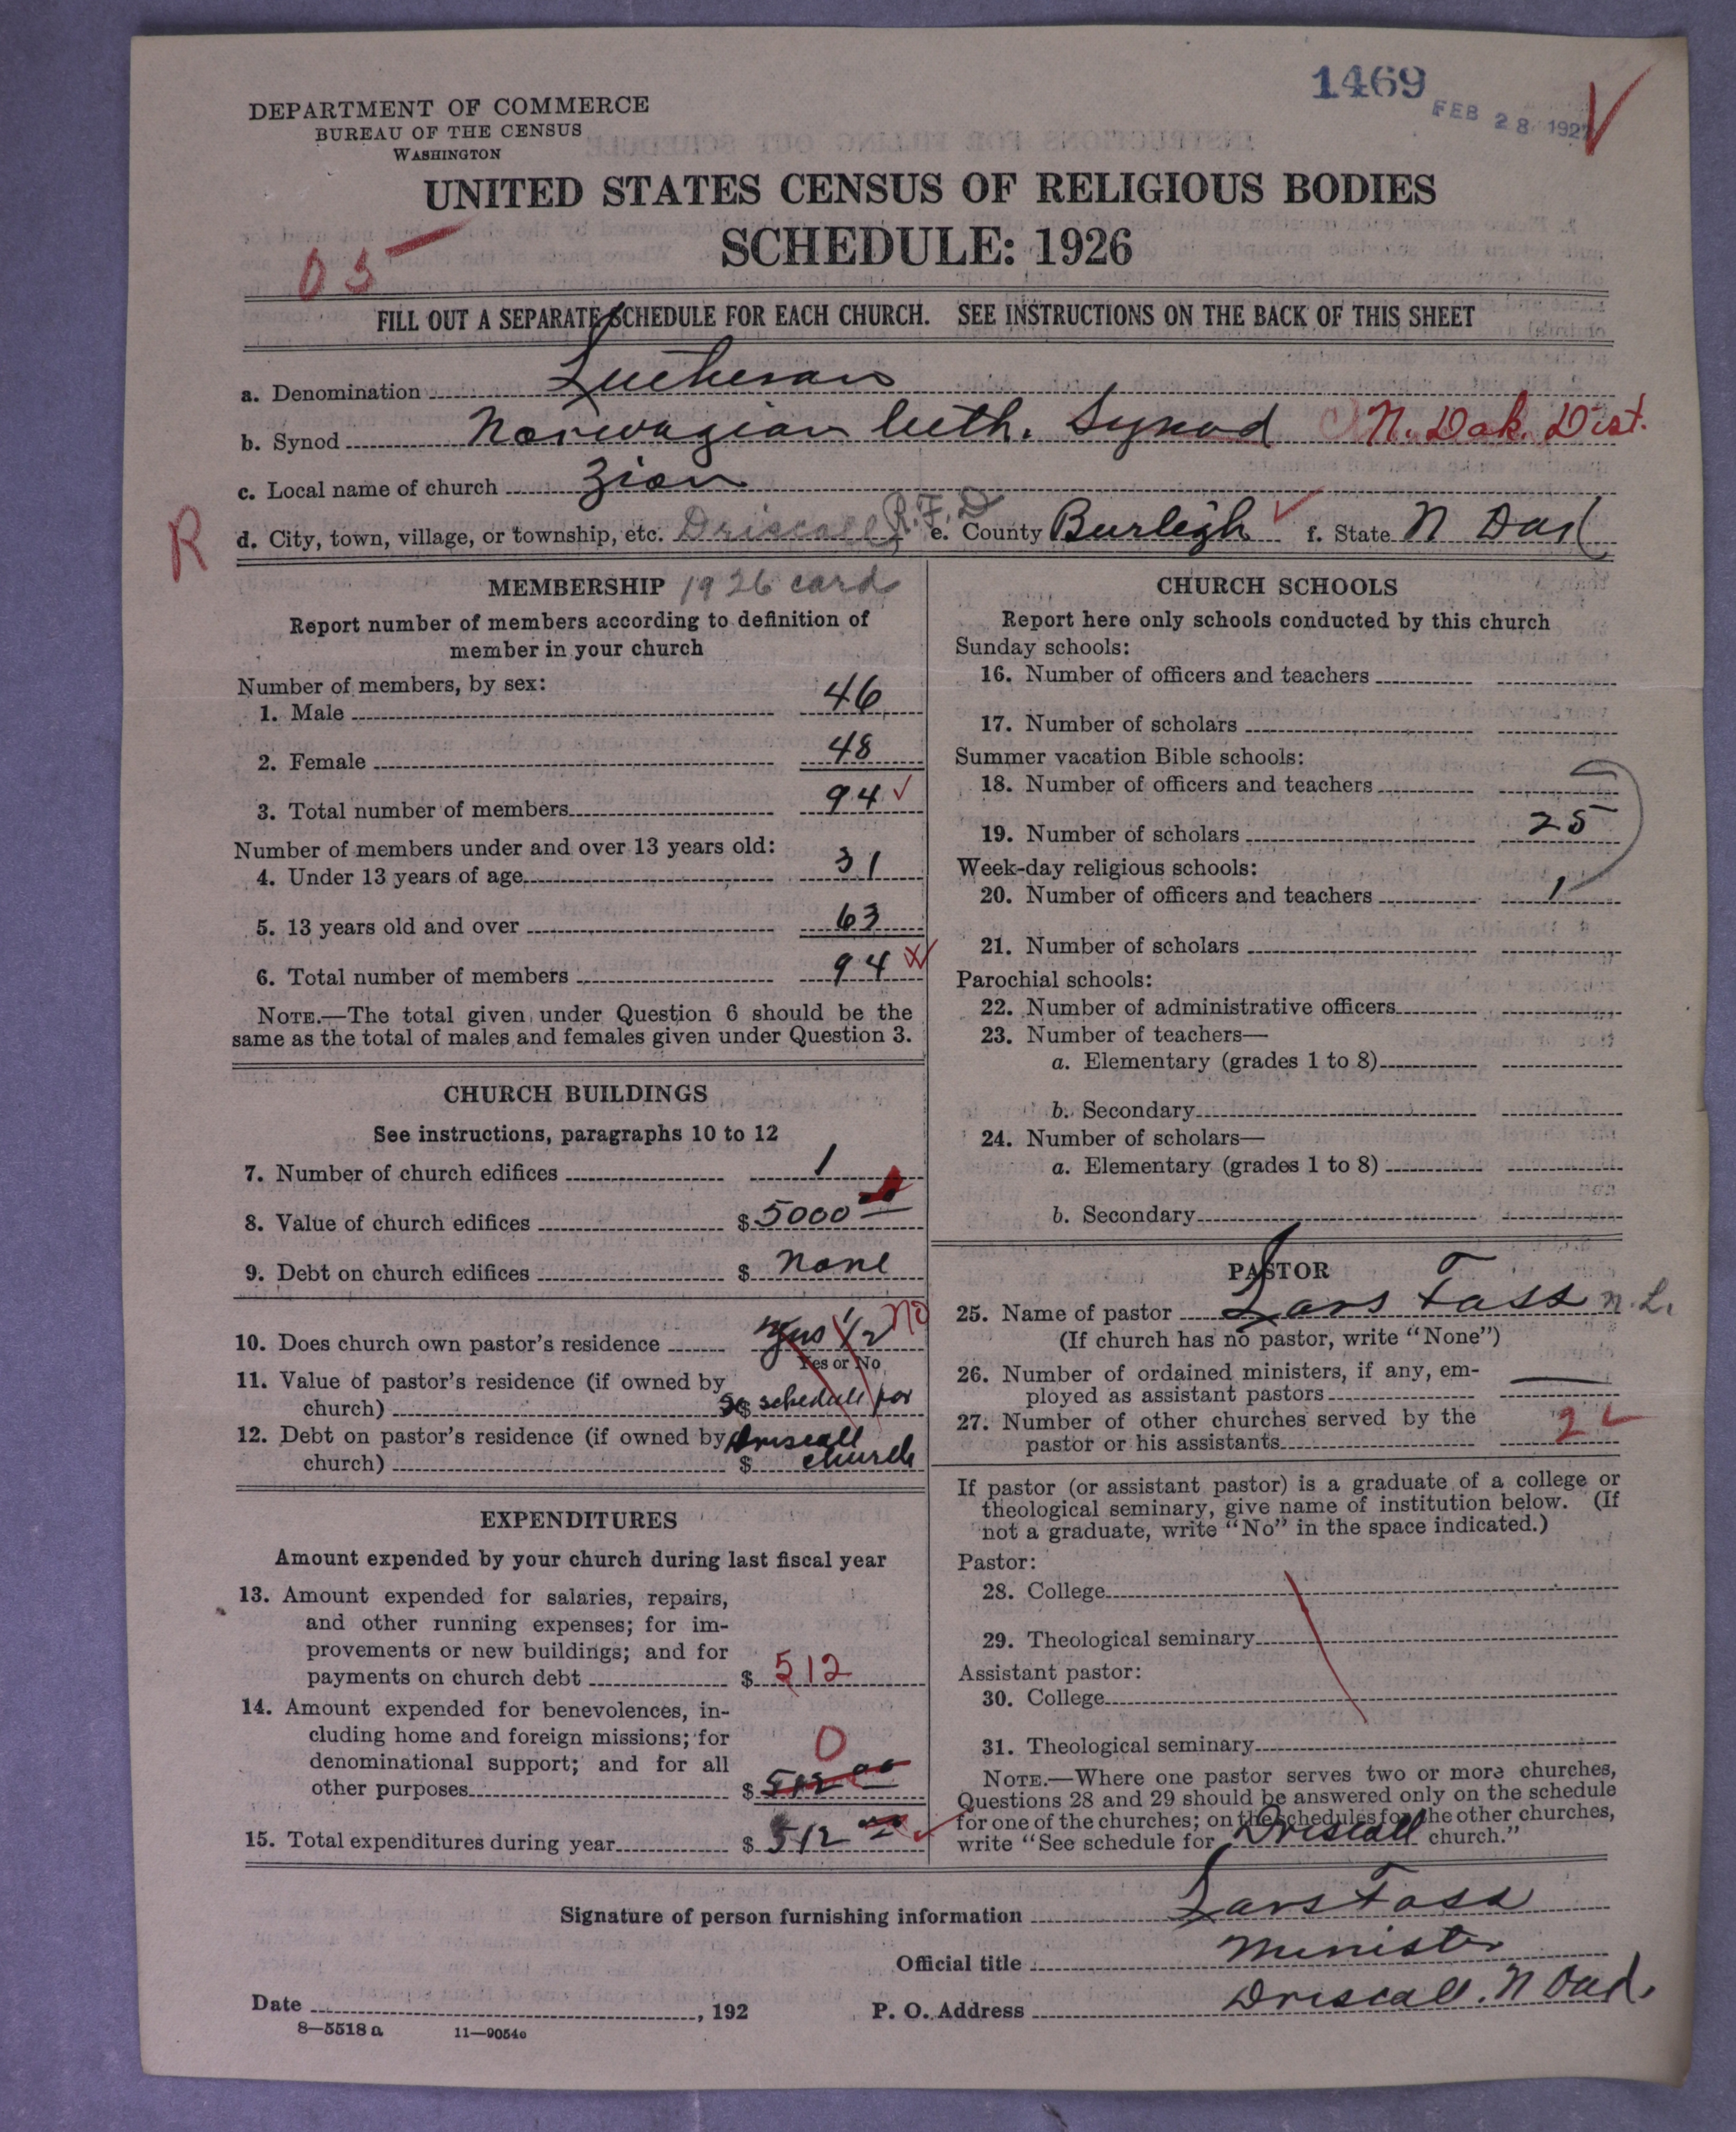 1469
FEB 28 1927
DEPARTMENT OF COMMERCE
BUREAU OF THE CENSUS
WASHINGTON
UNITED STATES CENSUS OF RELIGIOUS BODIES
SCHEDULE: 1926
05
FILL OUT A SEPARATE SCHEDULE FOR EACH CHURCH. SEE INSTRUCTIONS ON THE BACK OF THIS SHEET
a. Denomination Lutheran
b. Synod Norwagian luth. Synod N. Dak. Dist.
c. Local name of church Zion
R d. City, town, village, or township, etc. Driscall R.F.D e. County Burleigh f. State N Dak
MEMBERSHIP 1926 card
Report number of members according to definition of
member in your church
Number of members, by sex:
1. Male 46
2. Female 48
3. Total number of members 94
Number of members under and over 13 years old:
4. Under 13 years of age 31
5. 13 years old and over 63
6. Total number of members 94
NOTE.—The total given under Question 6 should be the
same as the total of males and females given under Question 3.
CHURCH BUILDINGS
See instructions, paragraphs 10 to 12
7. Number of church edifices 1
8. Value of church edifices $ 5000 00
9. Debt on church edifices $ none
10. Does church own pastor's residence yus 1/2 no
Yes or No
11. Value of pastor's residence (if owned by
church) $ se schedule for
12. Debt on pastor's residence (if owned by Driscall
church) $ church
EXPENDITURES
Amount expended by your church during last fiscal year
13. Amount expended for salaries, repairs,
and other running expenses; for im-
provements or new buildings; and for
payments on church debt $ 512
14. Amount expended for benevolences, in-
cluding home and foreign missions; for
denominational support; and for all 0
other purposes $ 512 00
15. Total expenditures during year $ 512 00
CHURCH SCHOOLS
Report here only schools conducted by this church
Sunday schools:
16. Number of officers and teachers
17. Number of scholars
Summer vacation Bible schools:
18. Number of officers and teachers
19. Number of scholars 25
Week-day religious schools:
20. Number of officers and teachers 1
21. Number of scholars
Parochial schools:
22. Number of administrative officers
23. Number of teachers—
a. Elementary (grades 1 to 8)
b. Secondary
24. Number of scholars—
a. Elementary (grades 1 to 8)
b. Secondary
PASTOR
25. Name of pastor Lars Fass n.L.
(If church has no pastor, write "None")
26. Number of ordained ministers, if any, em-
ployed as assistant pastors
27. Number of other churches served by the
pastor or his assistants 2
If pastor (or assistant pastor) is a graduate of a college or
theological seminary, give name of institution below. (If
not a graduate, write "No" in the space indicated.)
Pastor:
28. College
29. Theological seminary
Assistant pastor:
30. College
31. Theological seminary
NOTE.—Where one pastor serves two or more churches,
Questions 28 and 29 should be answered only on the schedule
for one of the churches; on the schedules for the other churches,
write "See schedule for Driscall church."
Signature of person furnishing information Lars Foss
Official title minister
Date , 192 P. O. Address Driscall. N Dak.
8—5518 a 11—9054c